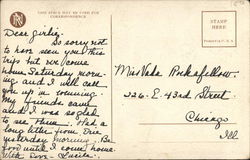 THIS SPACE MAY BE USED FOR
CORRESPONDENCE
STAMP
HERE
Dear Girlie:
So sorry not
to have seen you this
trip but we come
home Saturday morn-
ing and I will call
you up in evening.
My friends came
and I was so glad
to see them. Had a
long letter from Eric
yesterday morning. Be
good until I come home.
With love - Lucile.
Miss Veda Rockafellow.
326. E. 43rd Street.
Chicago
Ill